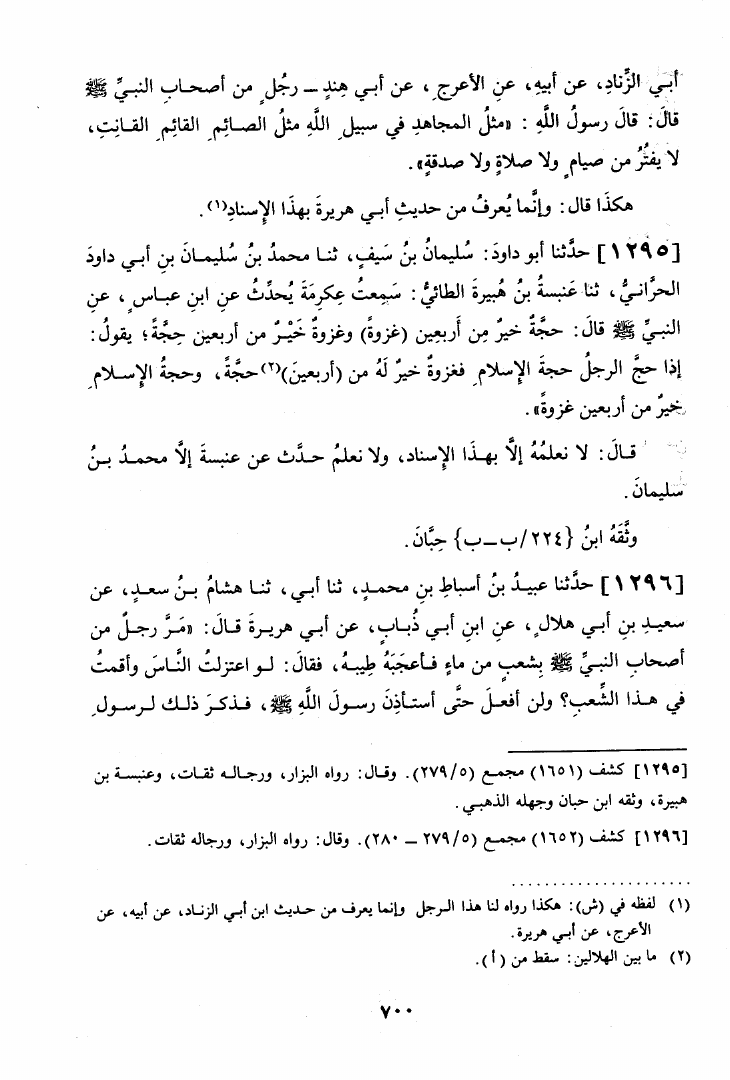 أبي الزِّنادِ، عن أبيهِ، عنِ الأعرجِ، عن أبي هِندٍ ــ رجُلٍ من أصحابِ النبيِّ ﷺ
قالَ: قالَ رسولُ اللَّهِ : «مثلُ المجاهدِ في سبيلِ اللَّهِ مثلُ الصائمِ القائمِ القانِتِ،
لا يفتُرُ من صيامٍ ولا صلاةٍ ولا صدقةٍ».
هكذَا قال: وإنَّما يُعرفُ من حديثِ أبي هريرةَ بهذَا الإِسنادِ(١).
[١٢٩٥] حدَّثنا أبو داودَ: سُليمانُ بنُ سَيفٍ، ثنا محمدُ بنُ سُليمانَ بنِ أبي داودَ
الحرَّانيُّ، ثنا عَنبسةُ بنُ هُبيرةَ الطائيُّ: سَمِعتُ عِكرمَةَ يُحدِّثُ عنِ ابنِ عباسٍ، عنِ
النبيِّ ﷺ قالَ: حجَّةٌ خيرٌ مِن أَربعِين (غزوةً) وغزوةٌ خَيْرٌ من أربعين حِجَّةً؛ يقولُ:
إذا حجَّ الرجلُ حجةَ الإِسلامِ فغزوةٌ خيرٌ لَهُ من (أربعينَ)(٢) حجَّةً، وحجةُ الإِسلامِ
خيرٌ من أربعين غزوةً».
قالَ: لا نعلمُهُ إلَّا بهذَا الإِسناد، ولا نعلمُ حدَّث عن عنبسةَ إلَّا محمدُ بنُ
سليمانَ.
وثَّقَهُ ابنُ {٢٢٤/ب ــ ب} حِبَّانَ.
[١٢٩٦] حدَّثنا عبيدُ بنُ أسباطِ بنِ محمدٍ، ثنا أبي، ثنا هشامُ بنُ سعدٍ، عن
سعيدِ بنِ أبي هلالٍ، عنِ ابنِ أبي ذُبابٍ، عن أبي هريرةَ قالَ: «مَرَّ رجلٌ من
أصحابِ النبيِّ ﷺ بِشعبٍ من ماءٍ فأعجَبَهُ طِيبهُ، فقالَ: لو اعتزلتُ النَّاسَ وأقمتُ
في هذا الشِّعبِ؟ ولن أفعلَ حتَّى أستأذِنَ رسولَ اللَّهِ ﷺ، فذكرَ ذلك لرسولِ
[١٢٩٥] كشف (١٦٥١) مجمع (٢٧٩/٥). وقال: رواه البزار، ورجاله ثقات، وعنبسة بن
هبيرة، وثقه ابن حبان وجهله الذهبي.
[١٢٩٦] كشف (١٦٥٢) مجمع (٢٧٩/٥ ــ ٢٨٠). وقال: رواه البزار، ورجاله ثقات.
(١) لفظه في (ش): هكذا رواه لنا هذا الرجل وإنما يعرف من حديث ابن أبي الزناد، عن أبيه، عن
الأعرج، عن أبي هريرة.
(٢) ما بين الهلالين: سقط من (أ).
٧٠٠